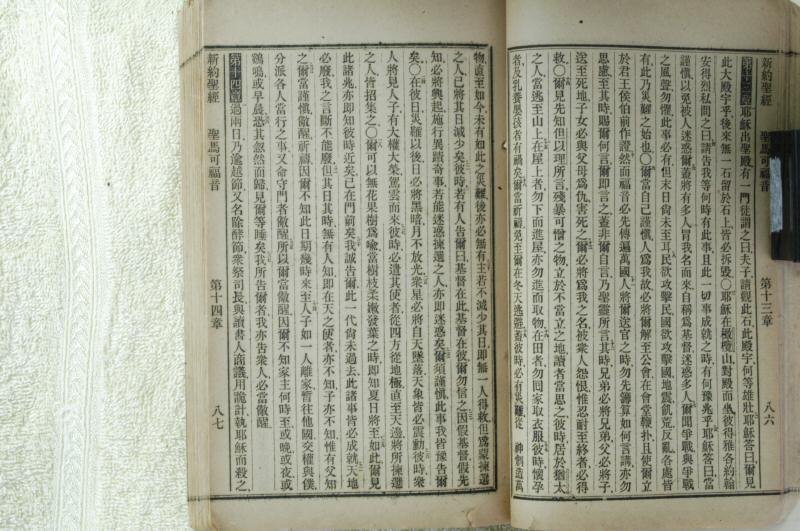 新約聖經　聖馬可福音　第十三章　八六
第十三章耶穌出聖殿有一門徒謂之曰夫子請觀此石此殿宇何等雄壯耶穌答曰爾見
此大殿宇乎後來無一石留於石上皆必拆毀〇耶穌在橄欖山對殿而坐彼得雅各約翰
安得烈私問之曰請告我等何時有此事且此一切事成就之時有何豫兆乎耶穌答曰當
謹慎以免被人迷惑爾蓋將有多人冒我名而來自稱爲基督迷惑多人爾聞爭戰與爭戰
之風聲勿懼此事必有但末日尙未至耳民欲攻擊民國欲攻擊國地震飢荒反亂各處皆
有此乃災難之始也〇爾當自己謹慎人爲我故必將爾解至公會在會堂鞭扑且使爾立
於君王侯伯前作證然而福音必先傳遍萬國人將爾送官之時勿先籌算如何言講亦勿
思慮至其時賜爾何言爾即言之蓋非爾自言乃聖靈所言其時兄弟必將兄弟父必將子
送至死地子女必與父母爲仇害死之爾必將爲我之名被衆人怨恨惟忍耐至終者必得
救〇爾見先知但以理所言殘暴可憎之物立於不當立之地讀者當思之彼時居於猶太
之人當逃至山上在屋上者勿下而進屋亦勿進而取物在田者勿囘家取衣服彼時懷孕
者及乳養嬰孩者有禍矣爾當祈禱免至爾在冬天逃避蓋彼時必有災難從　神創造萬
物直至如今未有如此之災難後亦必無有主若不減少其日即無一人得救但爲蒙揀選
之人已將其日減少矣彼時若有人告爾曰基督在此基督在彼爾勿信之因假基督假先
知必將興起施行異蹟奇事若能迷惑揀選之人亦即迷惑矣爾須謹慎此事我皆豫告爾
矣〇在彼日災難以後日必將黑暗月不放光衆星必將自天墜落天象皆必震動彼時衆
人將見人子有大權大榮駕雲而來彼時必遣其使者從四方從地極直至天邊將所揀選
之人皆招集之〇爾可以無花果樹爲喩當樹枝柔嫩發葉之時即知夏日將至如此爾見
此諸兆亦即知彼時近矣已在門前矣我誠告爾此一代尙未過去此諸事皆必成就天地
必廢我之言斷不能廢但其日其時無有人知即在天之使者亦不知子亦不知惟有父知
之爾當謹慎儆醒祈禱因爾不知此日期幾時來至人子如一人離家暫往他國交權與僕
分派各人當行之事又命守門者儆醒所以爾當儆醒因爾不知家主何時至或晚或夜或
鷄鳴或早晨恐其忽然而歸見爾等睡矣我所告爾者我亦告衆人必當儆醒
第十四章過兩日乃逾越節又名除酵節衆祭司長與讀書人商議用詭計執耶穌而殺之
新約聖經　聖馬可福音　第十四章　八七